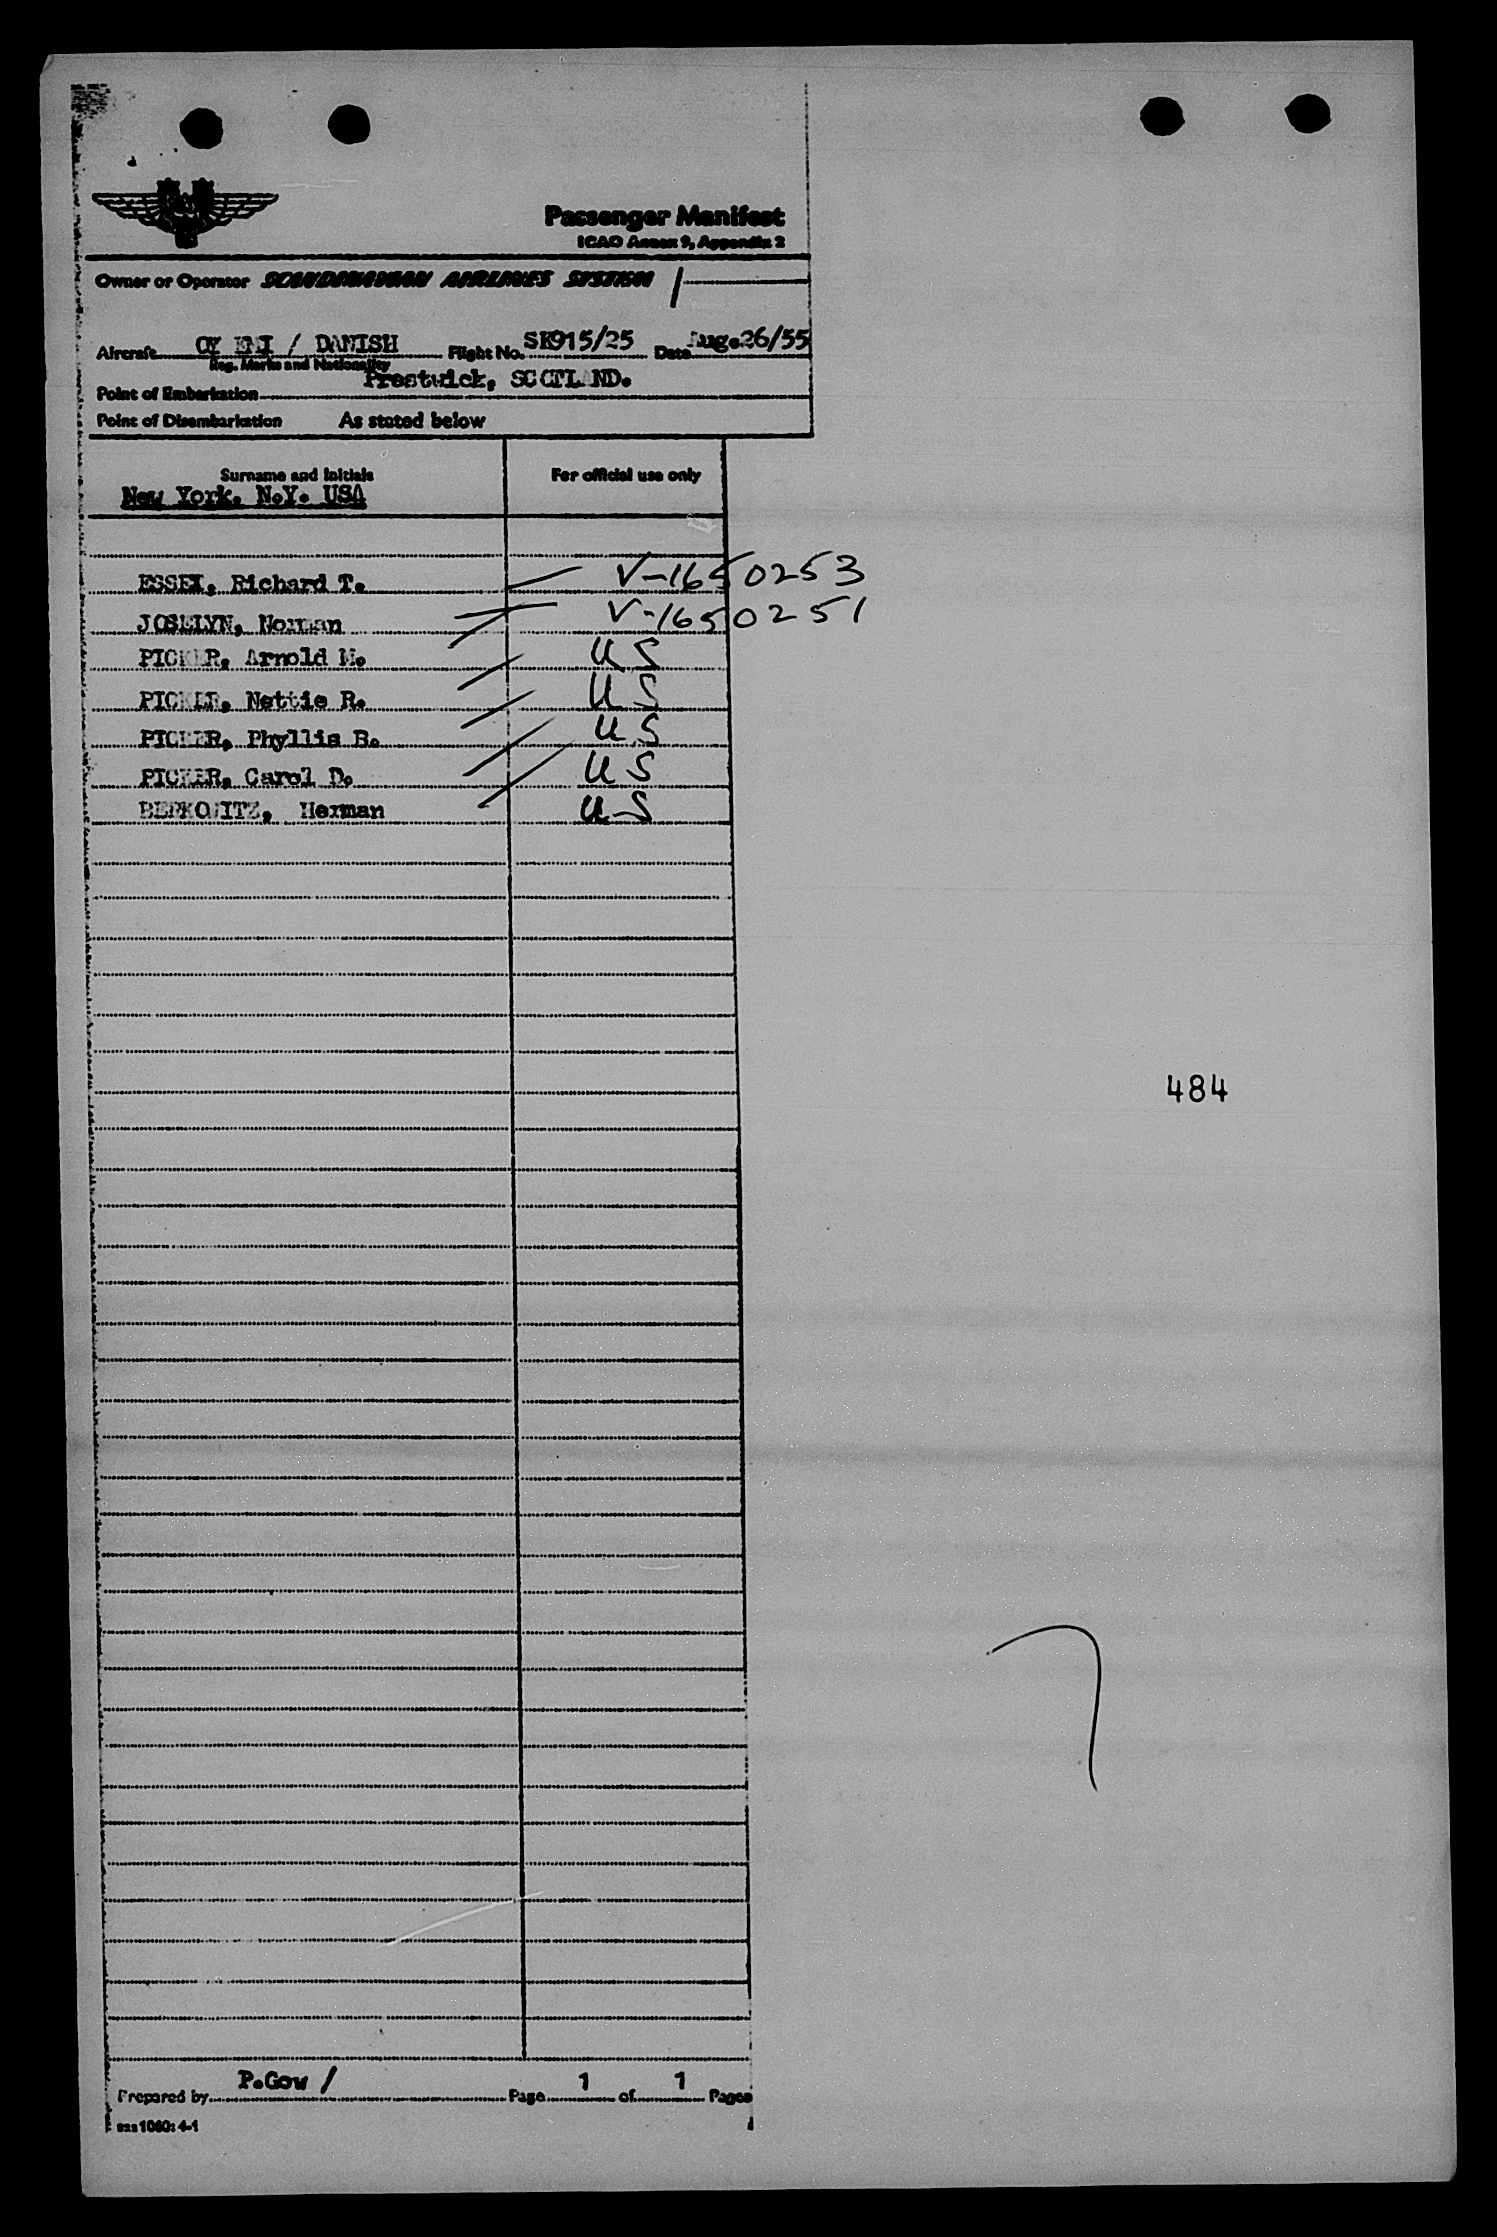 Passenger Manifest
ICAO Annex 9, Appendix 2
Owner or Operator SCANDINAVIAN AIRLINES SYSTEM /
Aircraft OY / DANISH Flight No. SK915/25 Date Aug.26/55
Reg. Marks and Nationality
Point of Embarkation Prestwick, SCOTLAND.
Point of Disembarkation As stated below
Surname and Initials For official use only
New York. N.Y. USA
ESSEX, Richard T. V-1650253
JOSELYN, Norman V-1650251
PICKER, Arnold M. US
PICKER, Nettie R. US
PICKER, Phyllis B. US
PICKER, Carol D. US
BERKOWITZ, Herman US
484
7
Prepared by P.Gow / Page 1 of 1 Pages
sas 1060: 4-1